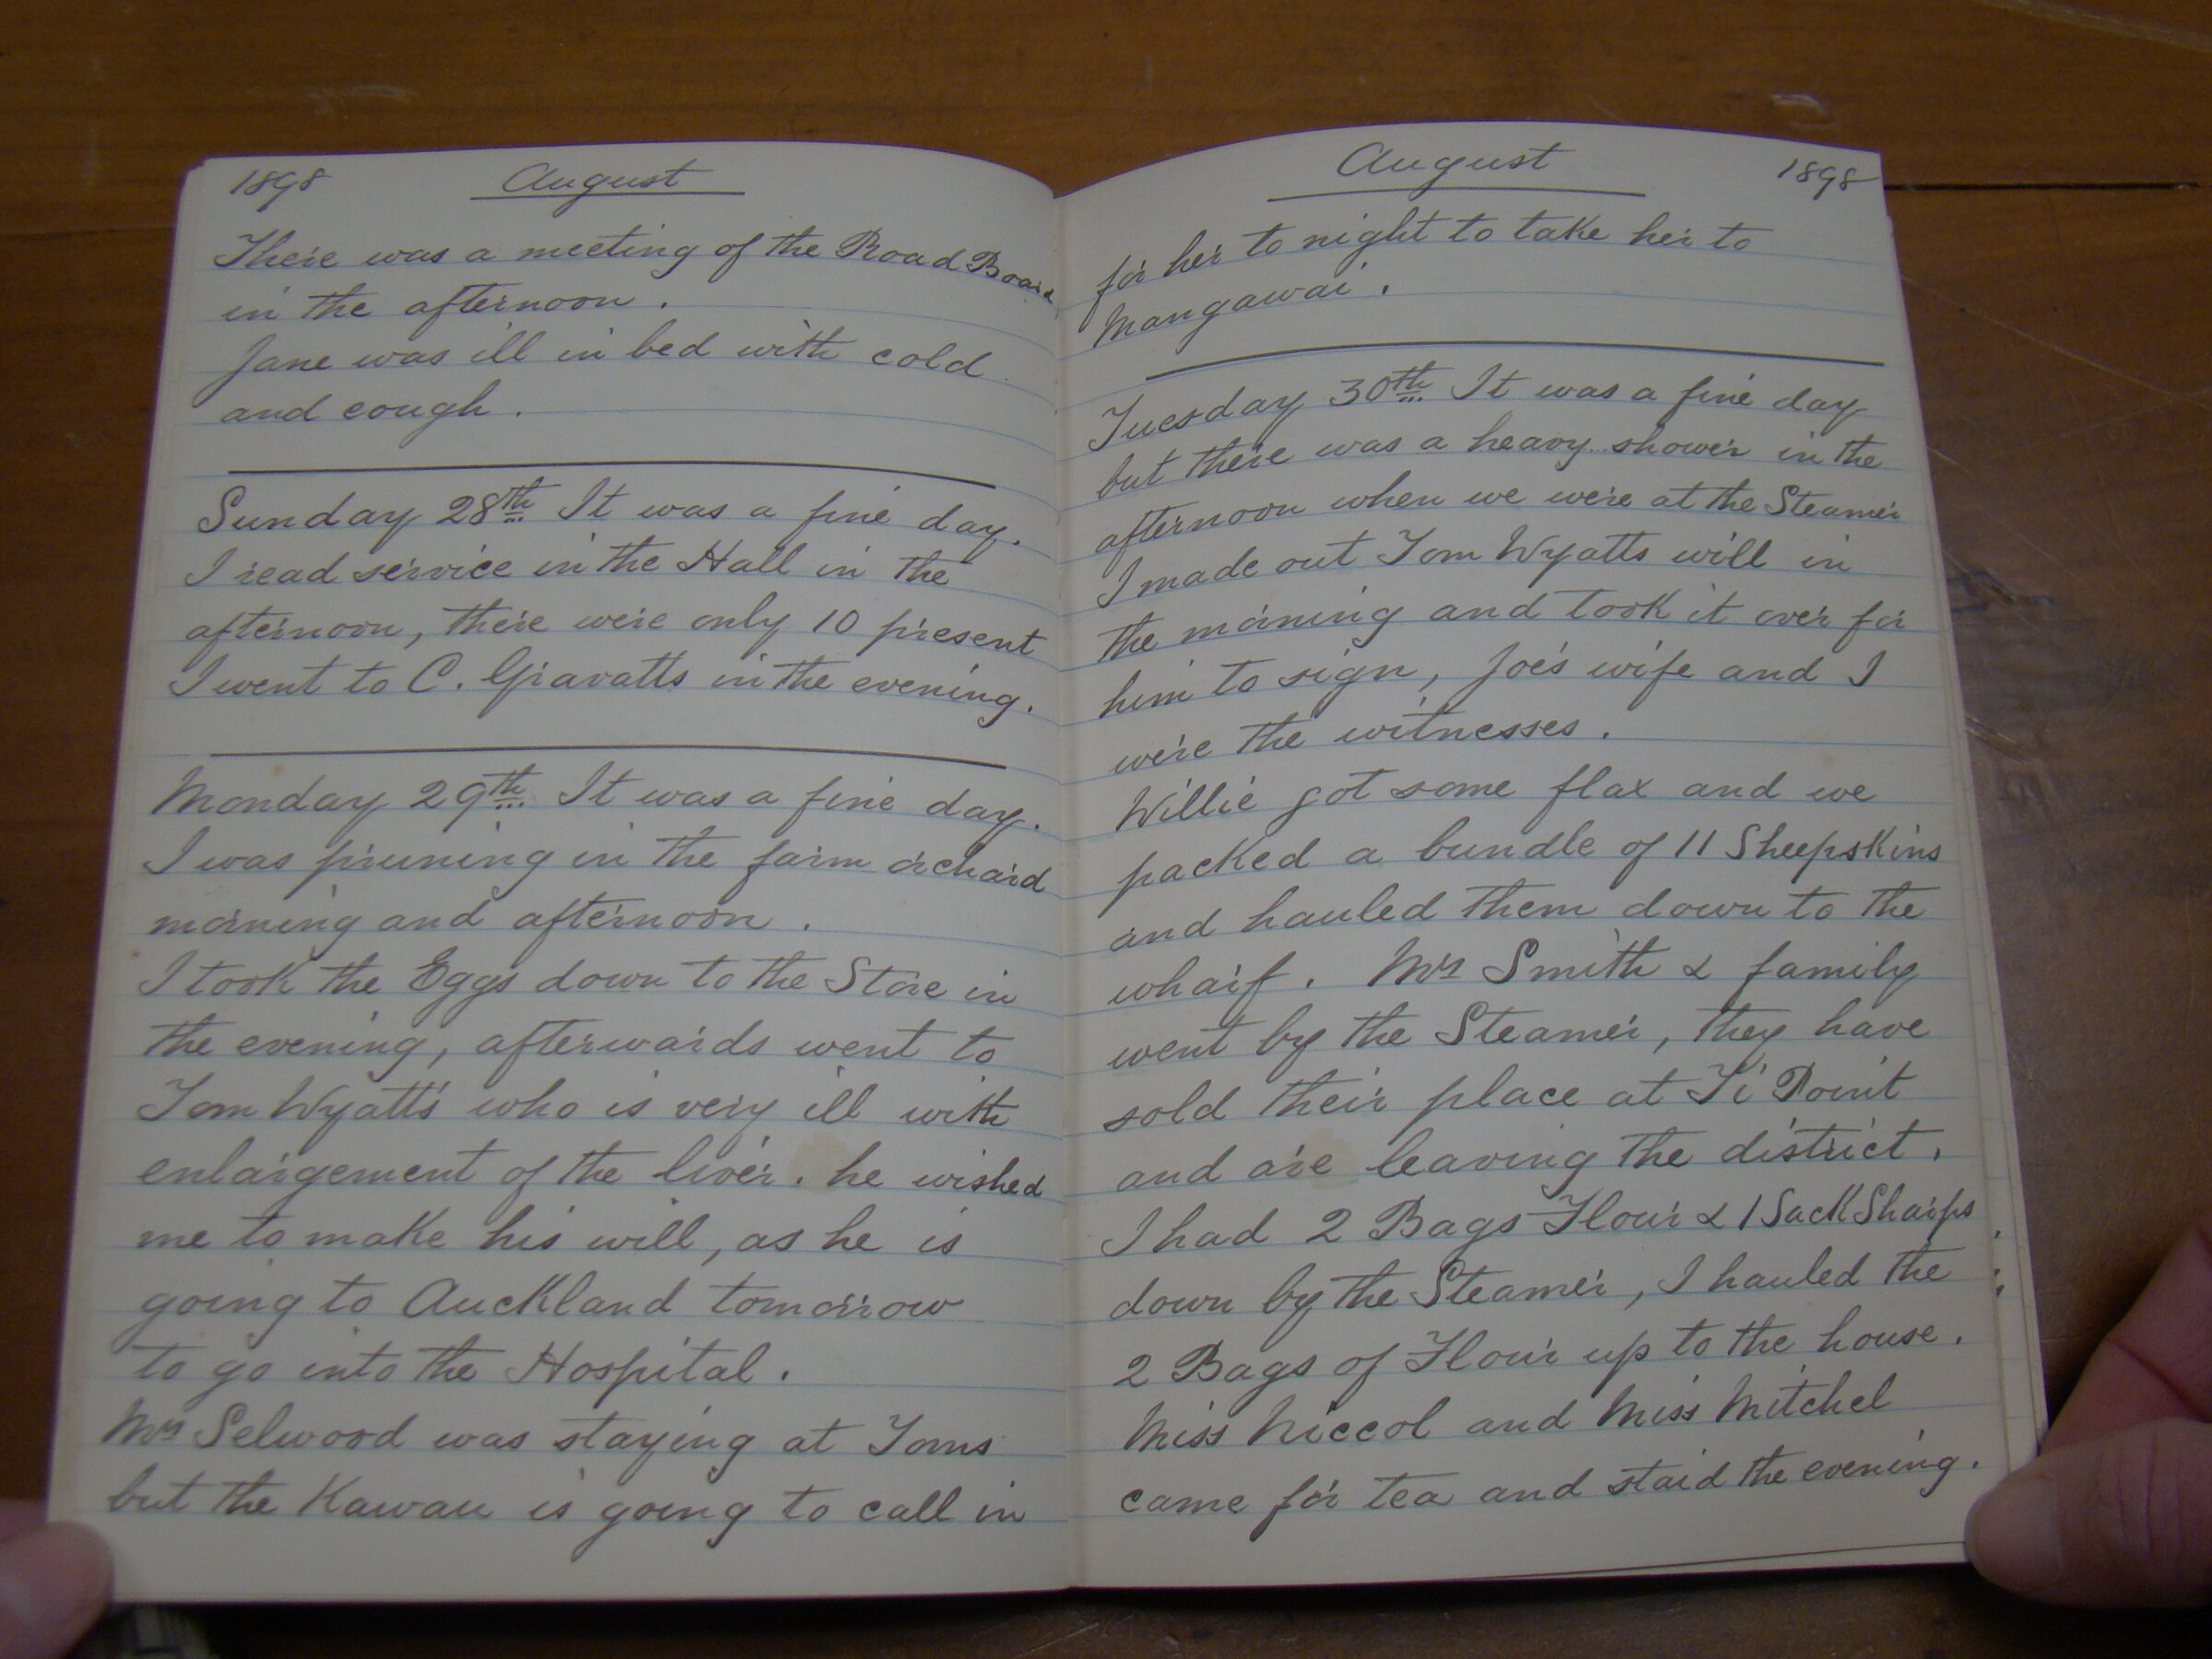 1898 August
There was a meeting of the Road Board
in the afternoon.
Jane was ill in bed with cold
and cough.
Sunday 28th It was a fine day.
I read service in the Hall in the
afternoon, there were only 10 present
I went to C. Gravatts in the evening.
Monday 29th It was a fine day.
I was pruning in the farm orchard
morning and afternoon.
I took the Eggs down to the Store in
the evening, afterwards went to
Tom Wyatts who is very ill with
enlargement of the liver. he wished
me to make his will, as he is
going to Auckland tomorrow
to go into the Hospital.
Mrs Selwood was staying at Toms
but the Kawau is going to call in
August 1898
for her to night to take her to
Mangawai.
Tuesday 30th It was a fine day
but there was a heavy shower in the
afternoon when we were at the Steamer
I made out Tom Wyatts will in
the morning and took it over for
him to sign, Joe's wife and I
were the witnesses.
Willie got some flax and we
packed a bundle of 11 Sheepskins
and hauled them down to the
wharf. Mrs Smith & family
went by the Steamer, they have
sold their place at Ti Point
and are leaving the district.
I had 2 Bags Flour & 1 Sack Sharps
down by the Steamer, I hauled the
2 Bags of Flour up to the house.
Miss Niccol and Miss Mitchel
came for tea and staid the evening.